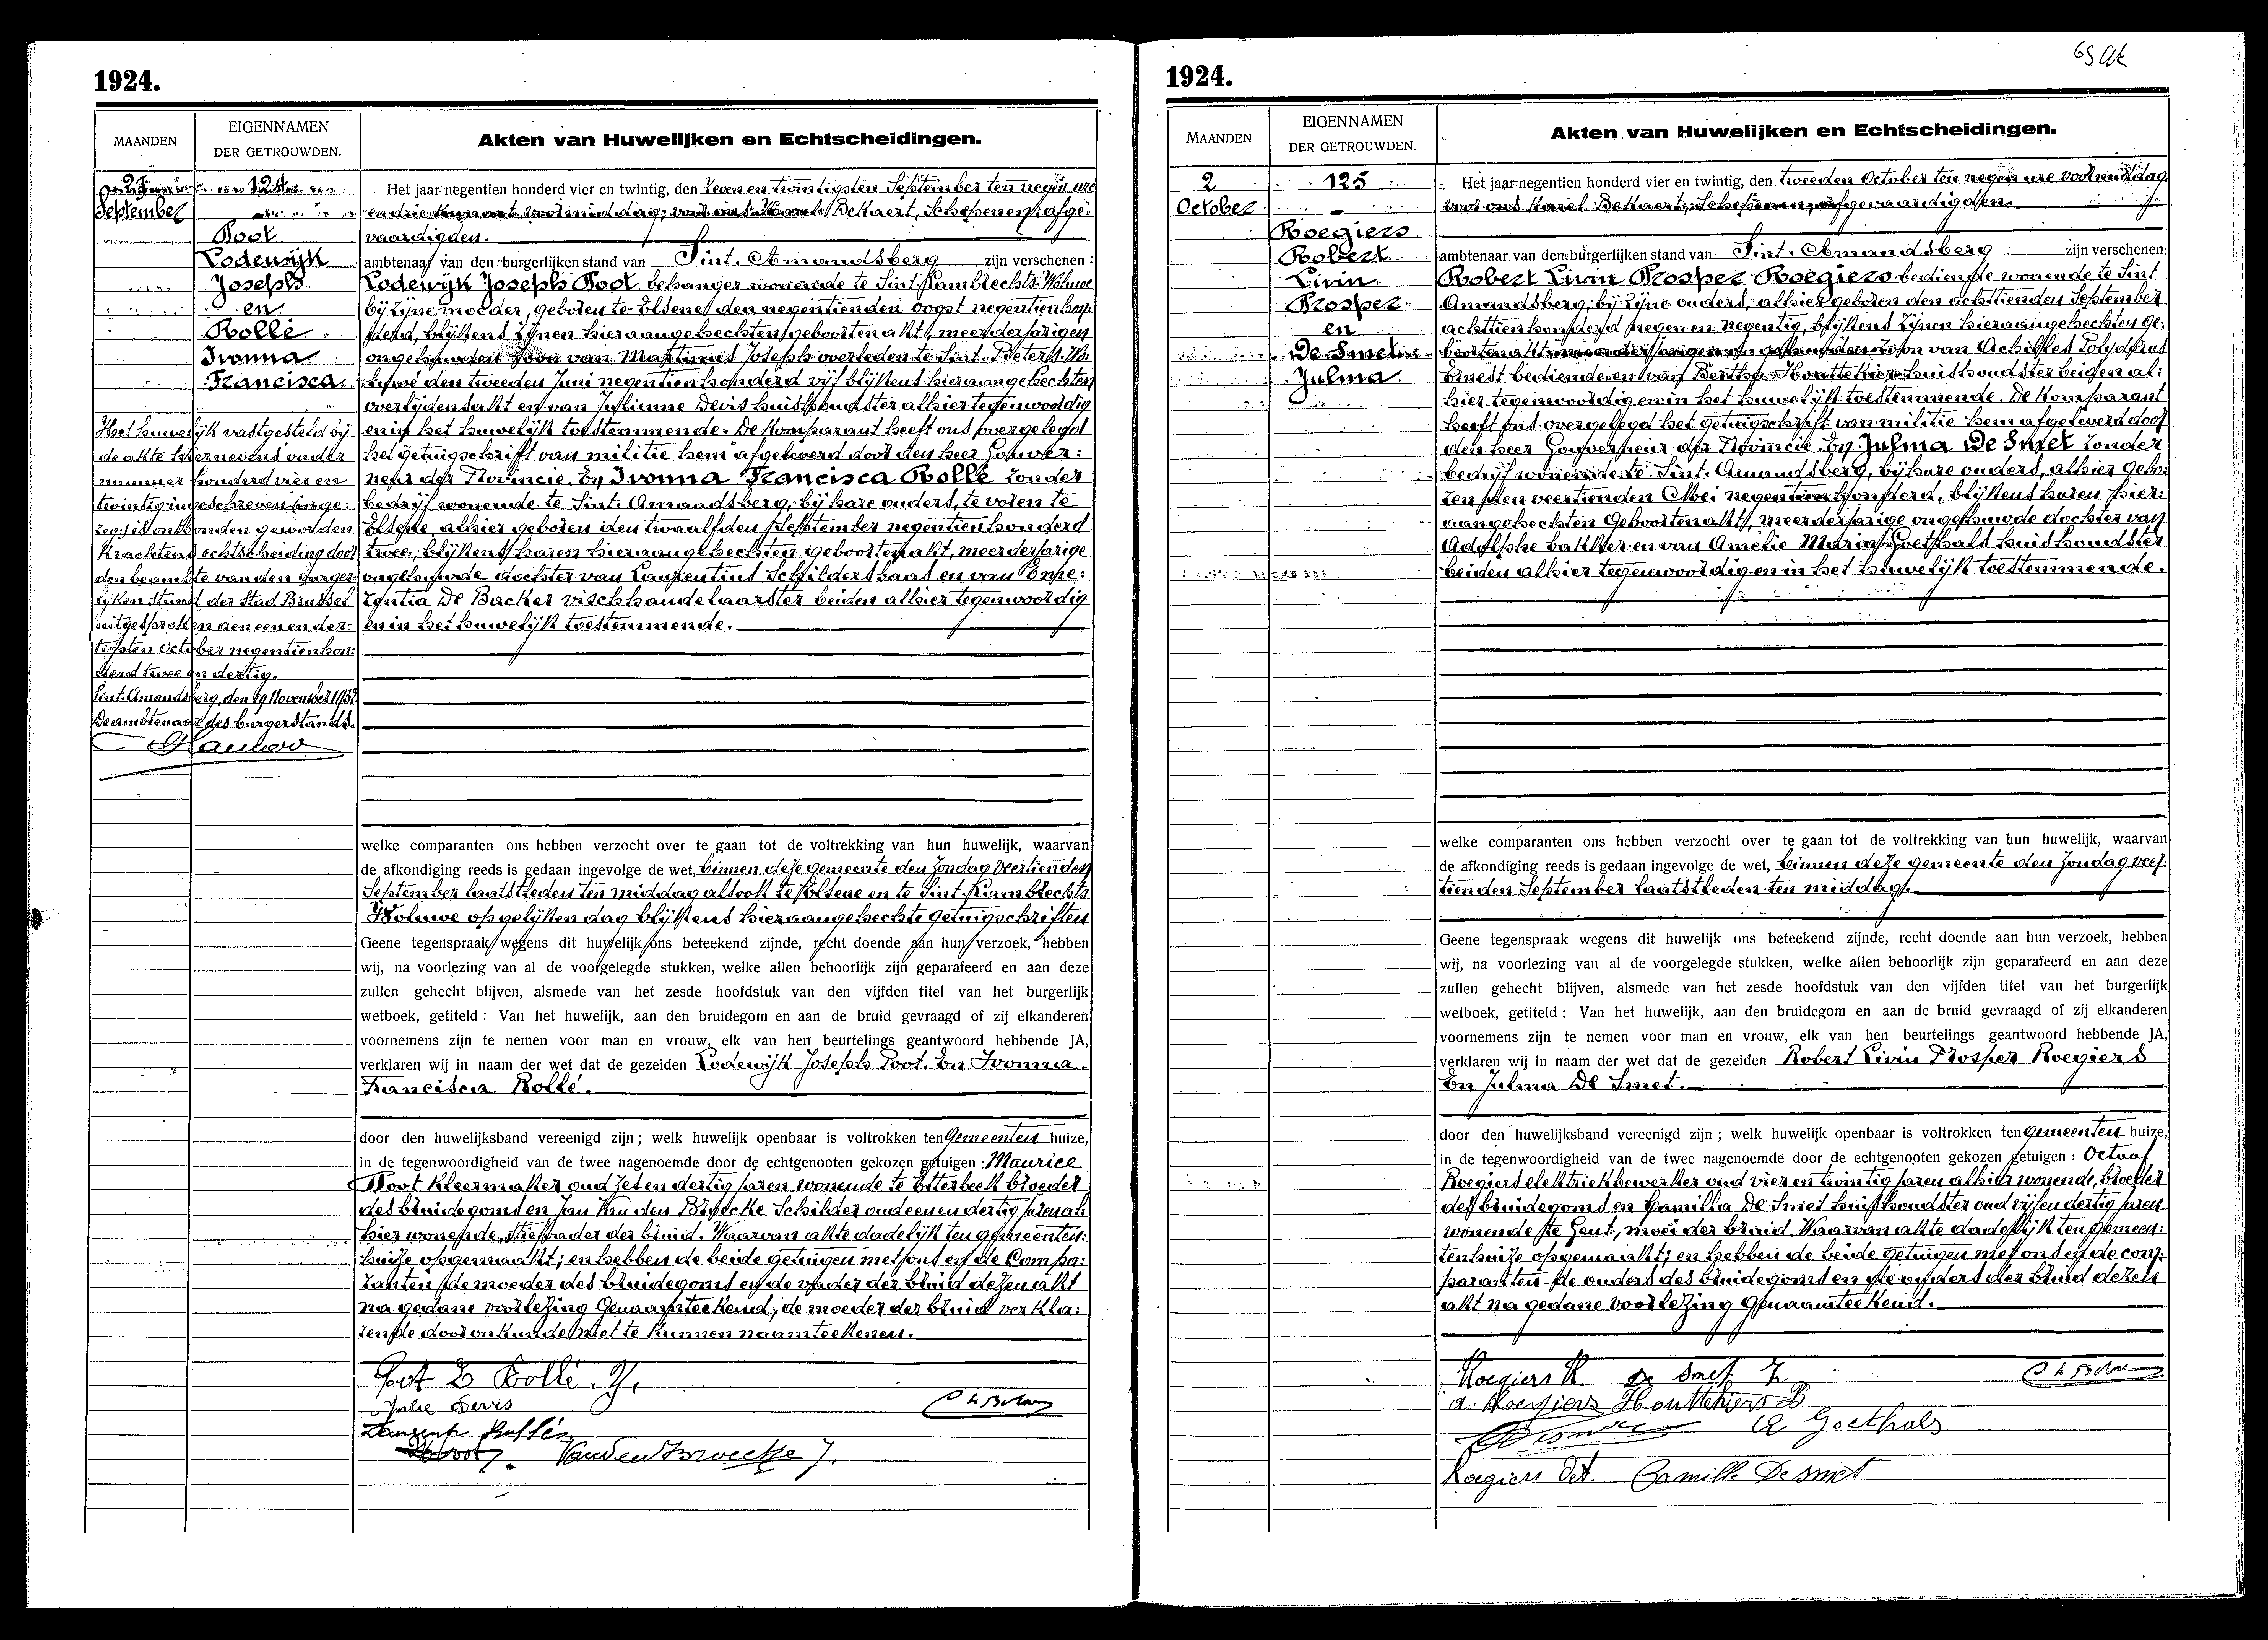 1924.
MAANDEN
EIGENNAMEN
DER GETROUWDEN.
Akten van Huwelijken en Echtscheidingen.
27
September
124
Poot
Lodewijk
Joseph
en
Rollé
Ivonna
Francisca
Het huwelijk vastgesteld bij
de akte hiernevens onder
nummer honderd vier en
twintig ingeschreven (inge:
zeg:) is ontbonden geworden
krachtens echtscheiding door
den beambte van den burger:
lijken stand der Stad Brussel
uitgesproken den een en der:
tigsten October negentien hon:
derd twee en dertig.
Sint-Amandsberg, den 19 November 1932
De ambtenaar des burgerstands.
Het jaar negentien honderd vier en twintig, den zeven en twintigsten September ten negen ure
en drie kwaart voormiddag, voor ons Karel Bekaert, Schepenen, afge:
vaardigden.
ambtenaar van den burgerlijken stand van Sint-Amandsberg zijn verschenen:
Lodewijk Joseph Poot behanger wonende te Sint-Lambrechts-Woluwe
bij zijne moeder, geboren te Elsene den negentienden oogst negentien hon:
derd, blijkens zijnen hieraangehechten geboortenakt, meerderjarigen
ongehuwden zoon van Martinus Joseph overleden te Sint-Pieters-Wo:
luwe den tweeden Juni negentien honderd vijf blijkens hieraangehechten
overlijdensakt en van Justienne Devis huishoudster alhier tegenwoordig
en in het huwelijk toestemmende. De komparant heeft ons overgelegd
het getuigschrift van militie hem afgeleverd door den heer Gouver:
neur der Provincie. En Ivonna Francisca Rollé zonder
bedrijf wonende te Sint-Amandsberg, bij hare ouders, te voren te
Elsene, alhier geboren den twaalfden September negentien honderd
twee, blijkens haren hieraangehechten geboortenakt, meerderjarige
ongehuwde dochter van Laurentius Schildersbaas en van Empe:
rentia De Backer vischhandelaarster beiden alhier tegenwoordig
en in het huwelijk toestemmende.
welke comparanten ons hebben verzocht over te gaan tot de voltrekking van hun huwelijk, waarvan
de afkondiging reeds is gedaan ingevolge de wet, binnen deze gemeente den Zondag veertienden
September laatstleden ten middag alsook te Elsene en te Sint-Lambrechts
Woluwe op gelijken dag blijkens hieraangehechte getuigschriften
Geene tegenspraak wegens dit huwelijk ons beteekend zijnde, recht doende aan hun verzoek, hebben
wij, na voorlezing van al de voorgelegde stukken, welke allen behoorlijk zijn geparafeerd en aan deze
zullen gehecht blijven, alsmede van het zesde hoofdstuk van den vijfden titel van het burgerlijk
wetboek, getiteld: Van het huwelijk, aan den bruidegom en aan de bruid gevraagd of zij elkanderen
voornemens zijn te nemen voor man en vrouw, elk van hen beurtelings geantwoord hebbende JA,
verklaren wij in naam der wet dat de gezeiden Lodewijk Joseph Poot. En Ivonna
Francisca Rollé.
door den huwelijksband vereenigd zijn; welk huwelijk openbaar is voltrokken ten Gemeenten huize,
in de tegenwoordigheid van de twee nagenoemde door de echtgenooten gekozen getuigen: Maurice
Poot kleermaker oud zes en dertig jaren wonende te Etterbeek broeder
des bruidegoms en Jan Van den Broecke Schilder oud een en dertig jaren al:
hier wonende, stiefvader der bruid. Waarvan akte dadelijk ten gemeenten:
huize opgemaakt; en hebben de beide getuigen met ons en de Compa:
ranten de moeder des bruidegoms en de vader der bruid dezen akt
na gedane voorlezing Genaamteekend; de moeder der bruid verkla:
rende door onkunde niet te kunnen naamteekenen.
Poot L Rollé. Y.
Julie Devis
Laurent Rollé
VandenBroecke J.
1924.
MAANDEN
EIGENNAMEN
DER GETROUWDEN.
Akten van Huwelijken en Echtscheidingen.
2
October
125
Roegiers
Robert
Livin
Prosper
en
De Smet
Julma
Het jaar negentien honderd vier en twintig, den tweeden October ten negen ure voormiddag,
voor ons Karel Bekaert, Schepenen, afgevaardigden.
ambtenaar van den burgerlijken stand van Sint-Amandsberg zijn verschenen:
Robert Livin Prosper Roegiers bediende wonende te Sint
Amandsberg, bij zijne ouders, alhier geboren den achttienden September
achttien honderd negen en negentig, blijkens zijnen hieraangehechten ge:
boortenakt meerderjarigen ongehuwden zoon van Achilles Polydrus
Ernest bediende en van Bertha Houttekier huishoudster beiden al:
hier tegenwoordig en in het huwelijk toestemmende. De komparant
heeft ons overgelegd het getuigschrift van militie hem afgeleverd door
den heer Gouverneur der Provincie. En Julma De Smet zonder
bedrijf wonende te Sint-Amandsberg, bij hare ouders, alhier gebo:
ren den veertienden Mei negentien honderd, blijkens haren hier:
aangehechten Geboortenakt, meerderjarige ongehuwde dochter van
Adolphe bakker en van Amélie Maria Goethals huishoudster
beiden alhier tegenwoordig en in het huwelijk toestemmende.
welke comparanten ons hebben verzocht over te gaan tot de voltrekking van hun huwelijk, waarvan
de afkondiging reeds is gedaan ingevolge de wet, binnen deze gemeente den Zondag veer:
tienden September laatstleden ten middag.
Geene tegenspraak wegens dit huwelijk ons beteekend zijnde, recht doende aan hun verzoek, hebben
wij, na voorlezing van al de voorgelegde stukken, welke allen behoorlijk zijn geparafeerd en aan deze
zullen gehecht blijven, alsmede van het zesde hoofdstuk van den vijfden titel van het burgerlijk
wetboek, getiteld: Van het huwelijk, aan den bruidegom en aan de bruid gevraagd of zij elkanderen
voornemens zijn te nemen voor man en vrouw, elk van hen beurtelings geantwoord hebbende JA,
verklaren wij in naam der wet dat de gezeiden Robert Livin Prosper Roegiers
En Julma De Smet.
door den huwelijksband vereenigd zijn; welk huwelijk openbaar is voltrokken ten gemeenten huize,
in de tegenwoordigheid van de twee nagenoemde door de echtgenooten gekozen getuigen: Octaaf
Roegiers elektriekbewerker oud vier en twintig jaren alhier wonende, broeder
des bruidegoms en Camilla De Smet huishoudster oud vijf en dertig jaren
wonende te Gent, moei der bruid. Waarvan akte dadelijk ten gemeen:
tenhuize opgemaakt; en hebben de beide getuigen met ons en de com:
paranten de ouders des bruidegoms en de ouders der bruid dezen
akt na gedane voorlezing genaamteekend.
Roegiers R. De Smet J.
a. Roegiers Houttekiers B
A Goethals
Roegiers Oct. Camille De Smet